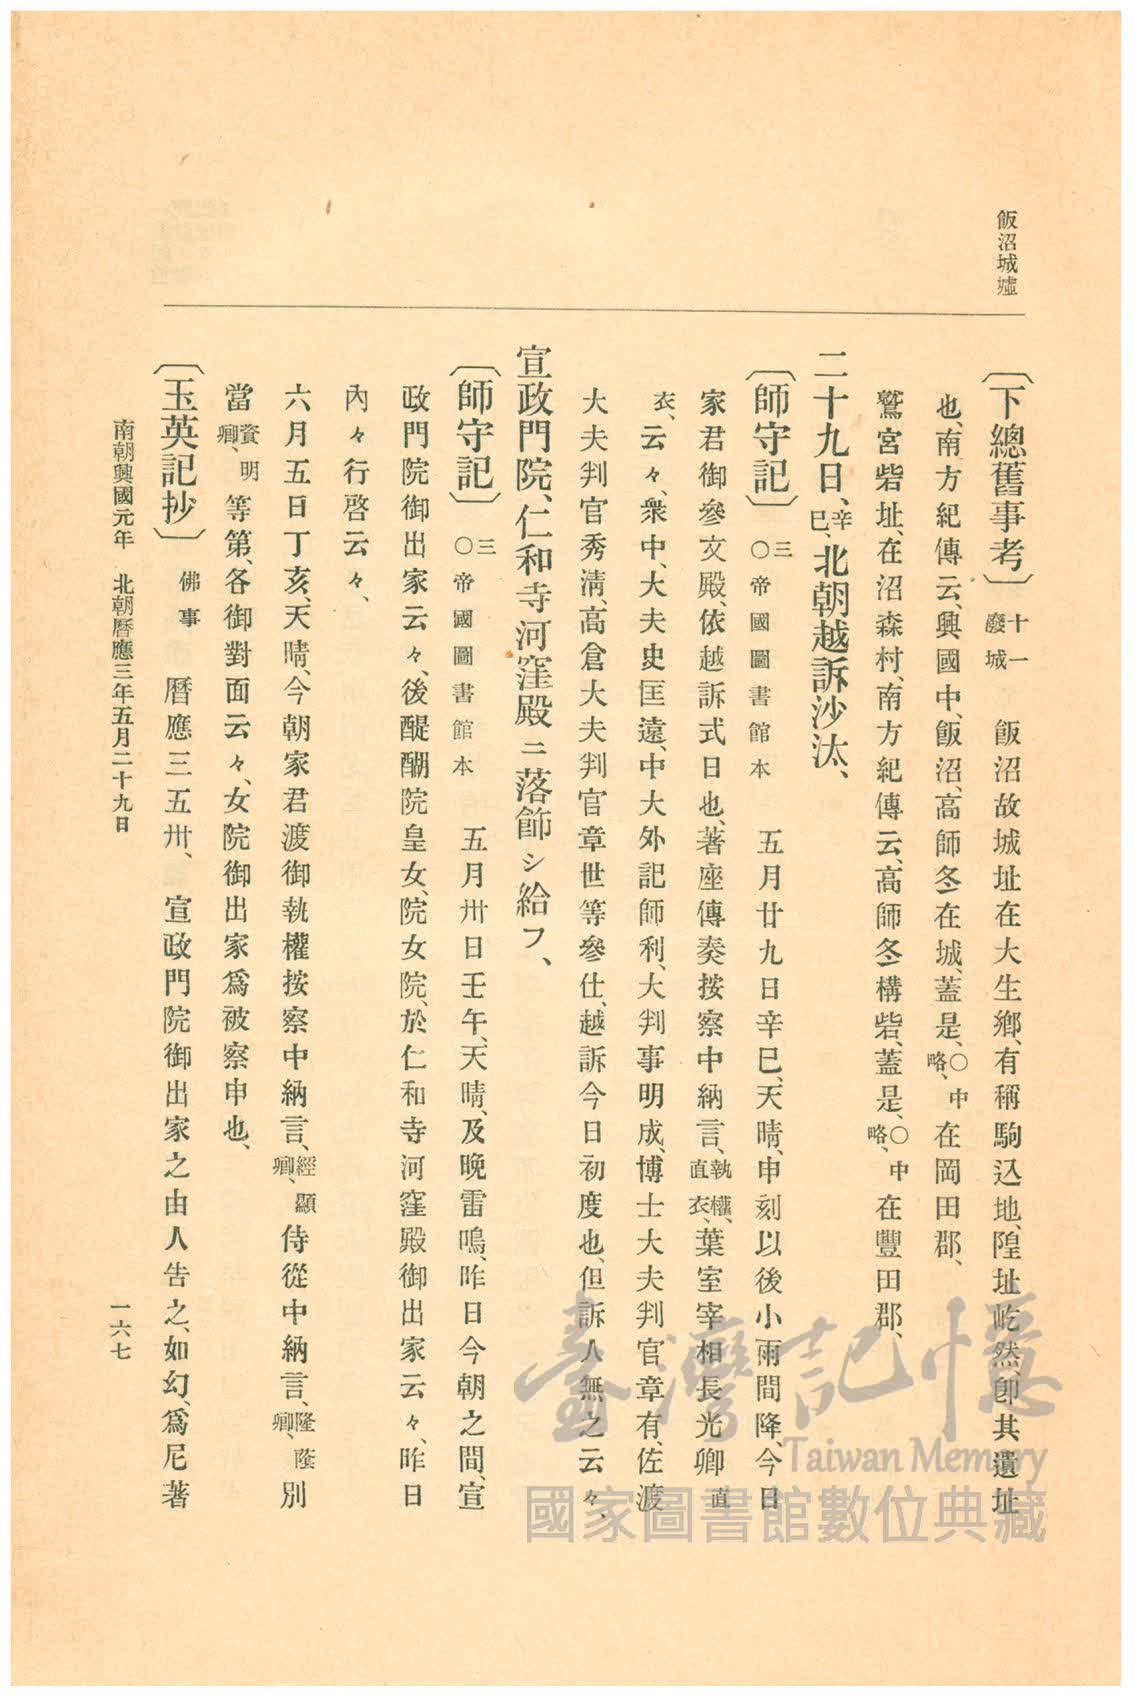 飯沼城墟
〔下總舊事考〕十一廢城 飯沼故城址在大生鄕、有稱駒込地、隍址屹然、卽其遺址
也、南方紀傳云、興國中、飯沼、高師冬在城、蓋是、○中略、在岡田郡、
鷲宮砦址、在沼森村、南方紀傳云、高師冬構砦、蓋是、○中略、在豐田郡、
二十九日、辛巳、北朝越訴沙汰、
〔師守記〕三○帝國圖書館本 五月廿九日辛巳、天晴、申刻以後小雨間降、今日
家君御參文殿、依越訴式日也、著座傳奏按察中納言、執權、直衣、葉室宰相長光卿直
衣、云々、衆中、大夫史匡遠、中大外記師利、大判事明成、博士大夫判官章有、佐渡
大夫判官秀淸、高倉大夫判官章世等參仕、越訴今日初度也、但訴人無之云々、
宣政門院、仁和寺河窪殿ニ落飾シ給フ、
〔師守記〕三○帝國圖書館本 五月卅日壬午、天晴、及晩雷鳴、昨日今朝之間、宣
政門院御出家云々、後醍醐院皇女、院女院、於仁和寺河窪殿御出家云々、昨日
內々行啓云々、
六月五日丁亥、天晴、今朝家君渡御執權按察中納言、經顯卿、侍從中納言、隆蔭卿、別
當資明卿、等第、各御對面云々、女院御出家爲被察申也、
〔玉英記抄〕佛事 曆應三五卅、宣政門院御出家之由人告之、如幻、爲尼著
南朝興國元年 北朝曆應三年五月二十九日
一六七
臺灣記憶
Taiwan Memory
國家圖書館數位典藏